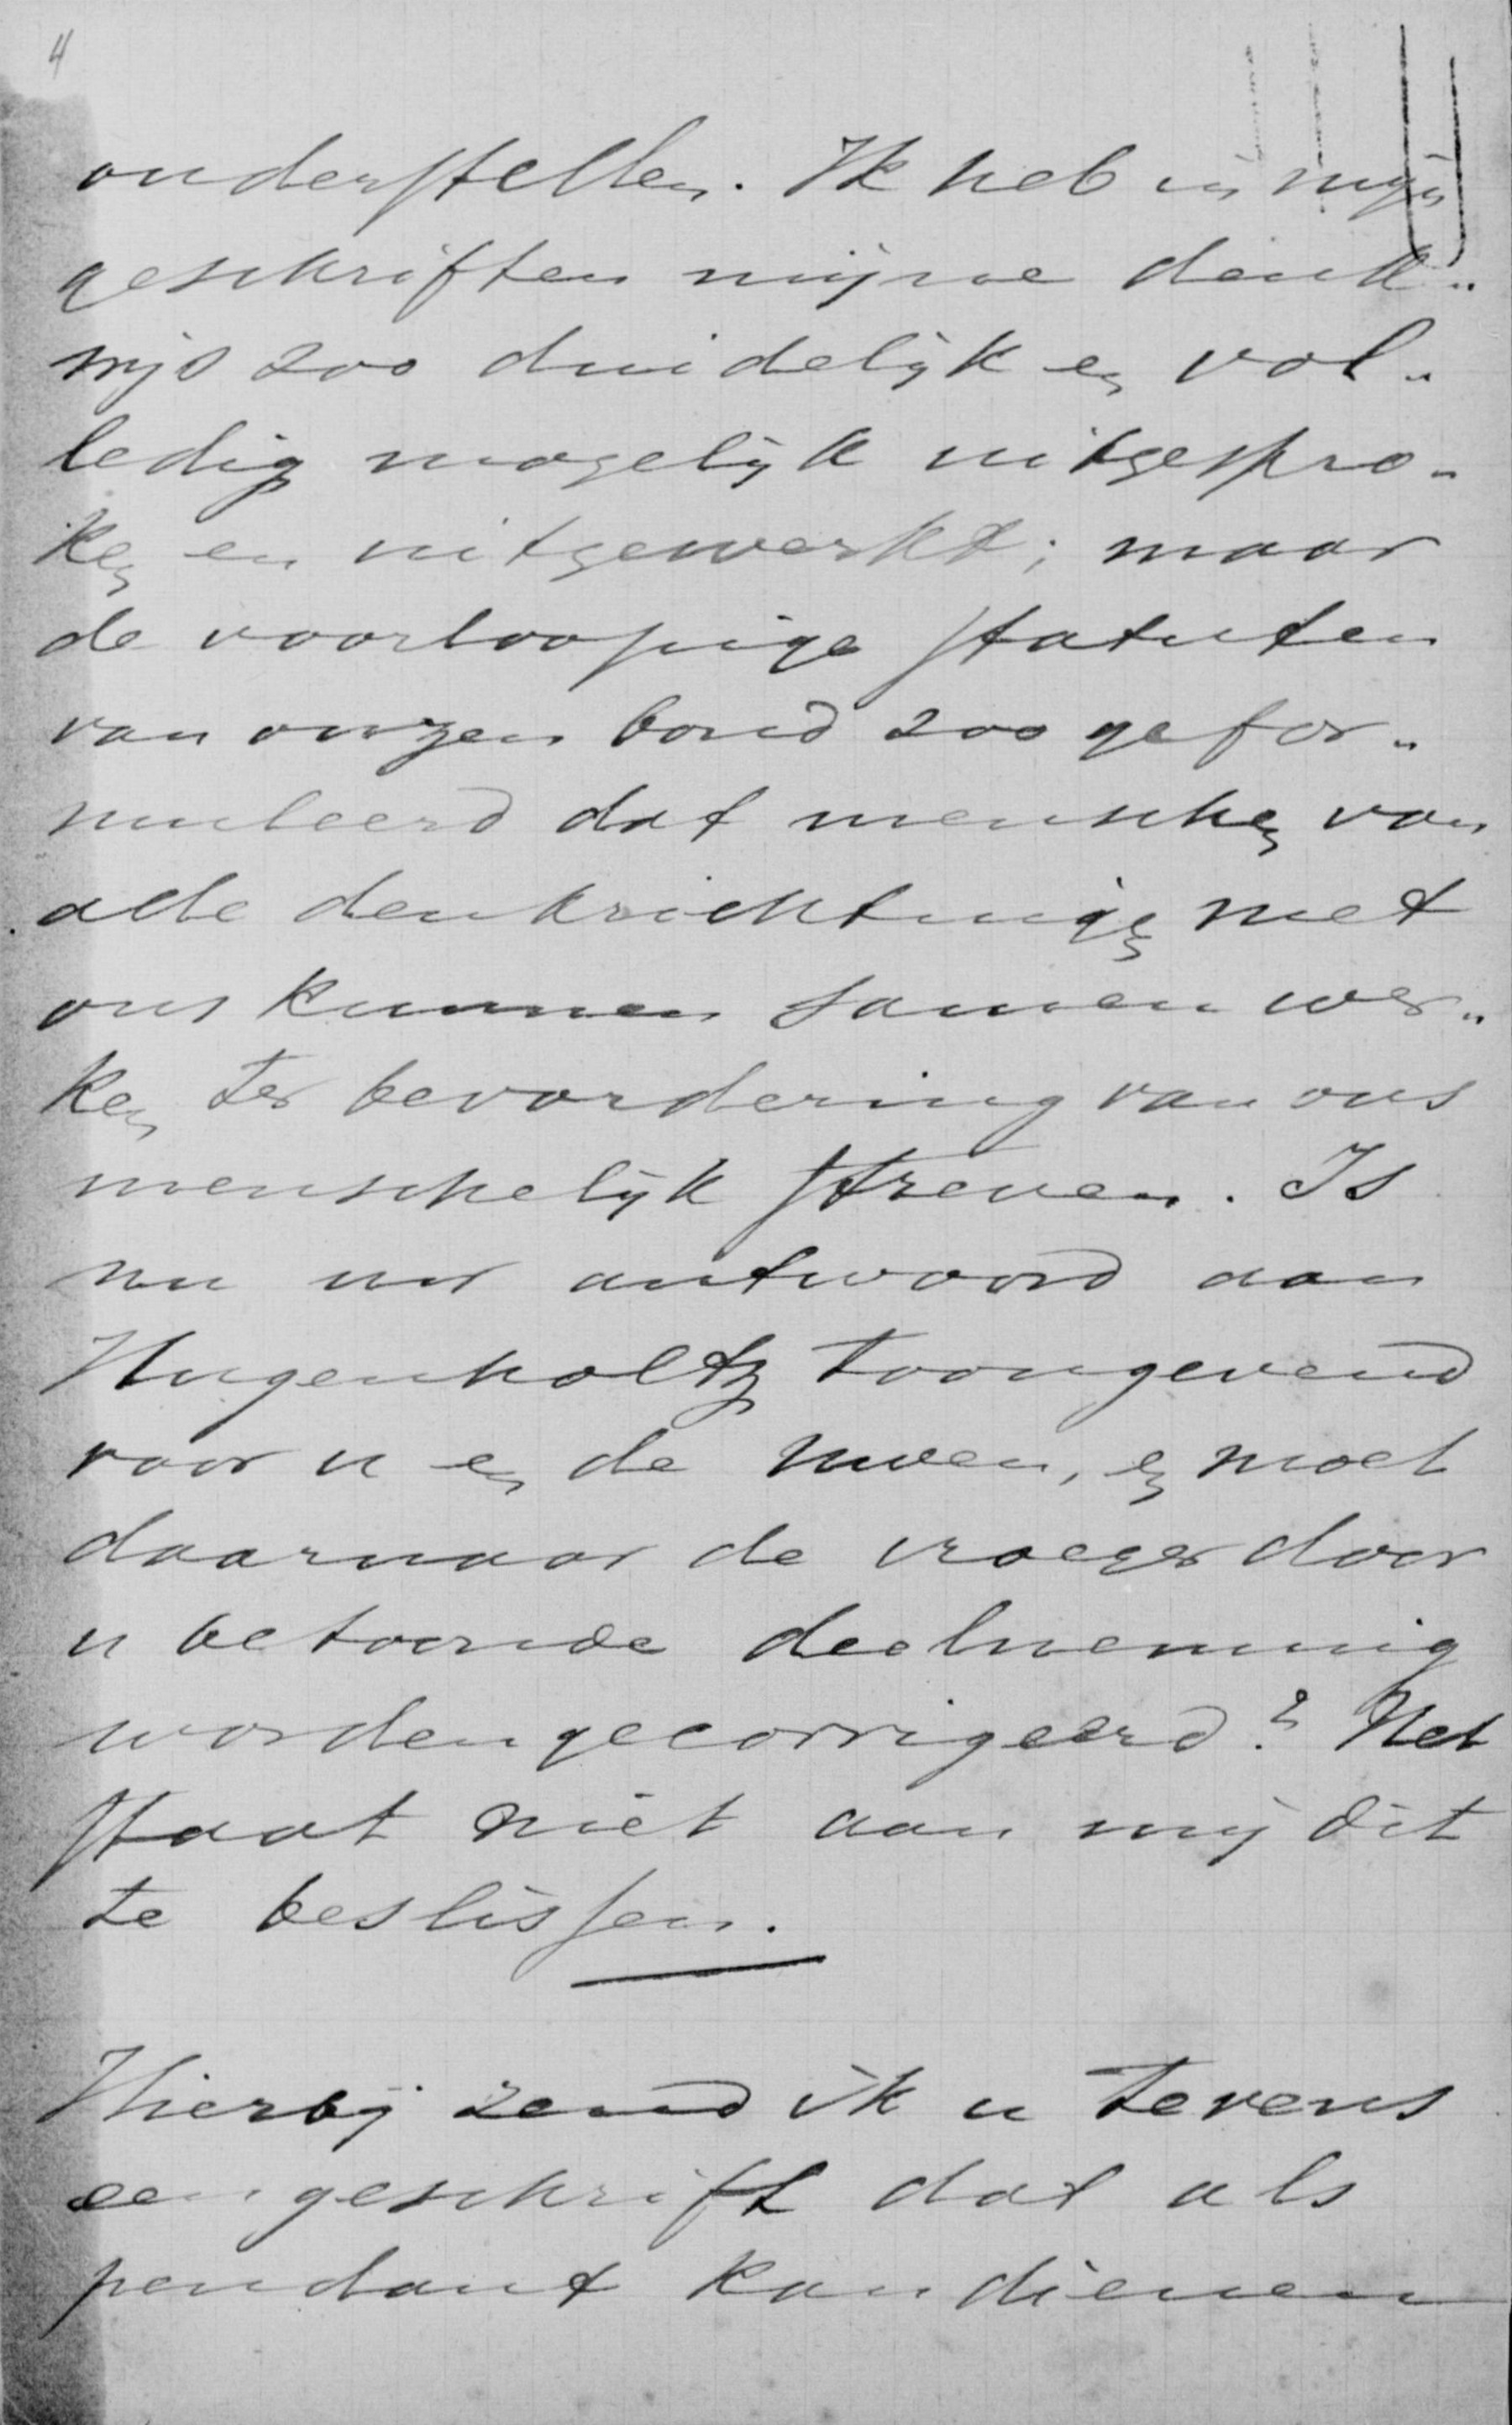 4
onderstellen. Ik heb in mijn
geschriften mijne denk„
wijs zoo duidelijk en vol„
ledig mogelijk uitgespro„
ken en uitgewerkt; maar
de voorloopige statuten
van onzen bond zoo gefor„
muleerd dat menschen van
alle denkrichtingen met
ons kunnen samen wer„
ken ter bevordering van ons
menschelijk streven. Is
nu uw antwoord aan
Hugenholtz toongevend
voor u en de uwen, en moet
daarnaar de vroeger door
u betoonde deelneming
worden gecorrigeerd? Het
staat niet aan mij dit
te beslissen.
Hierbij zend ik u tevens
een geschrift dat als
pendant kan dienen